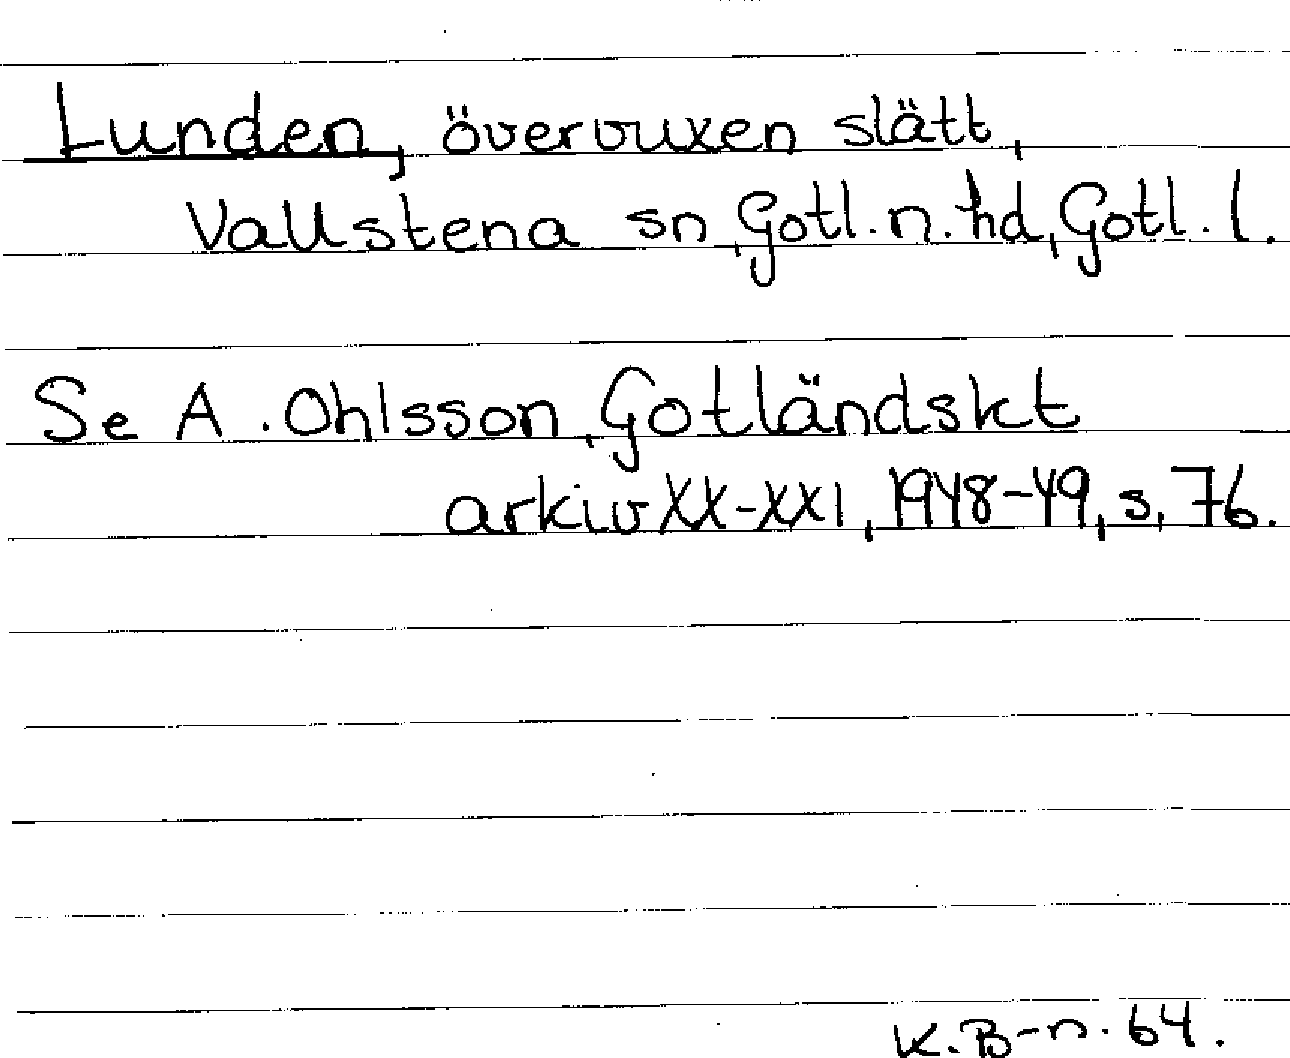 Lunden, övervuxen slätt,
Vallstena sn, Gotl. n. hd, Gotl. l.
Se A. Ohlsson, Gotländskt
arkiv XX-XXI, 1948-49, s. 76.
K. B-n. 64.